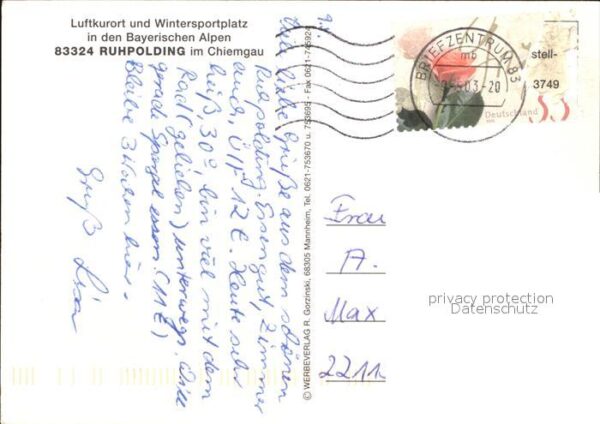 Luftkurort und Wintersportplatz
in den Bayerischen Alpen
83324 RUHPOLDING im Chiemgau
9.
liebe Grüße aus dem schönen
Ruhpolding. Essen gut, Zimmer
auch, Ü/F 12 €. Heute sehr
heiß, 30°, bin viel mit dem
Rad (geliehen) unterwegs.
gerade Spargel essen (11 €)
Bleibe 3 Wochen hier.
Gruß
© WERBEVERLAG R. Gorzinski, 68305 Mannheim, Tel. 0621-753670 u. 753695 - Fax 0621-745924
BRIEFZENTRUM 83
mb
03-20
stell-
3749
Deutschland
55
Frau
A.
Max
2211
privacy protection
Datenschutz